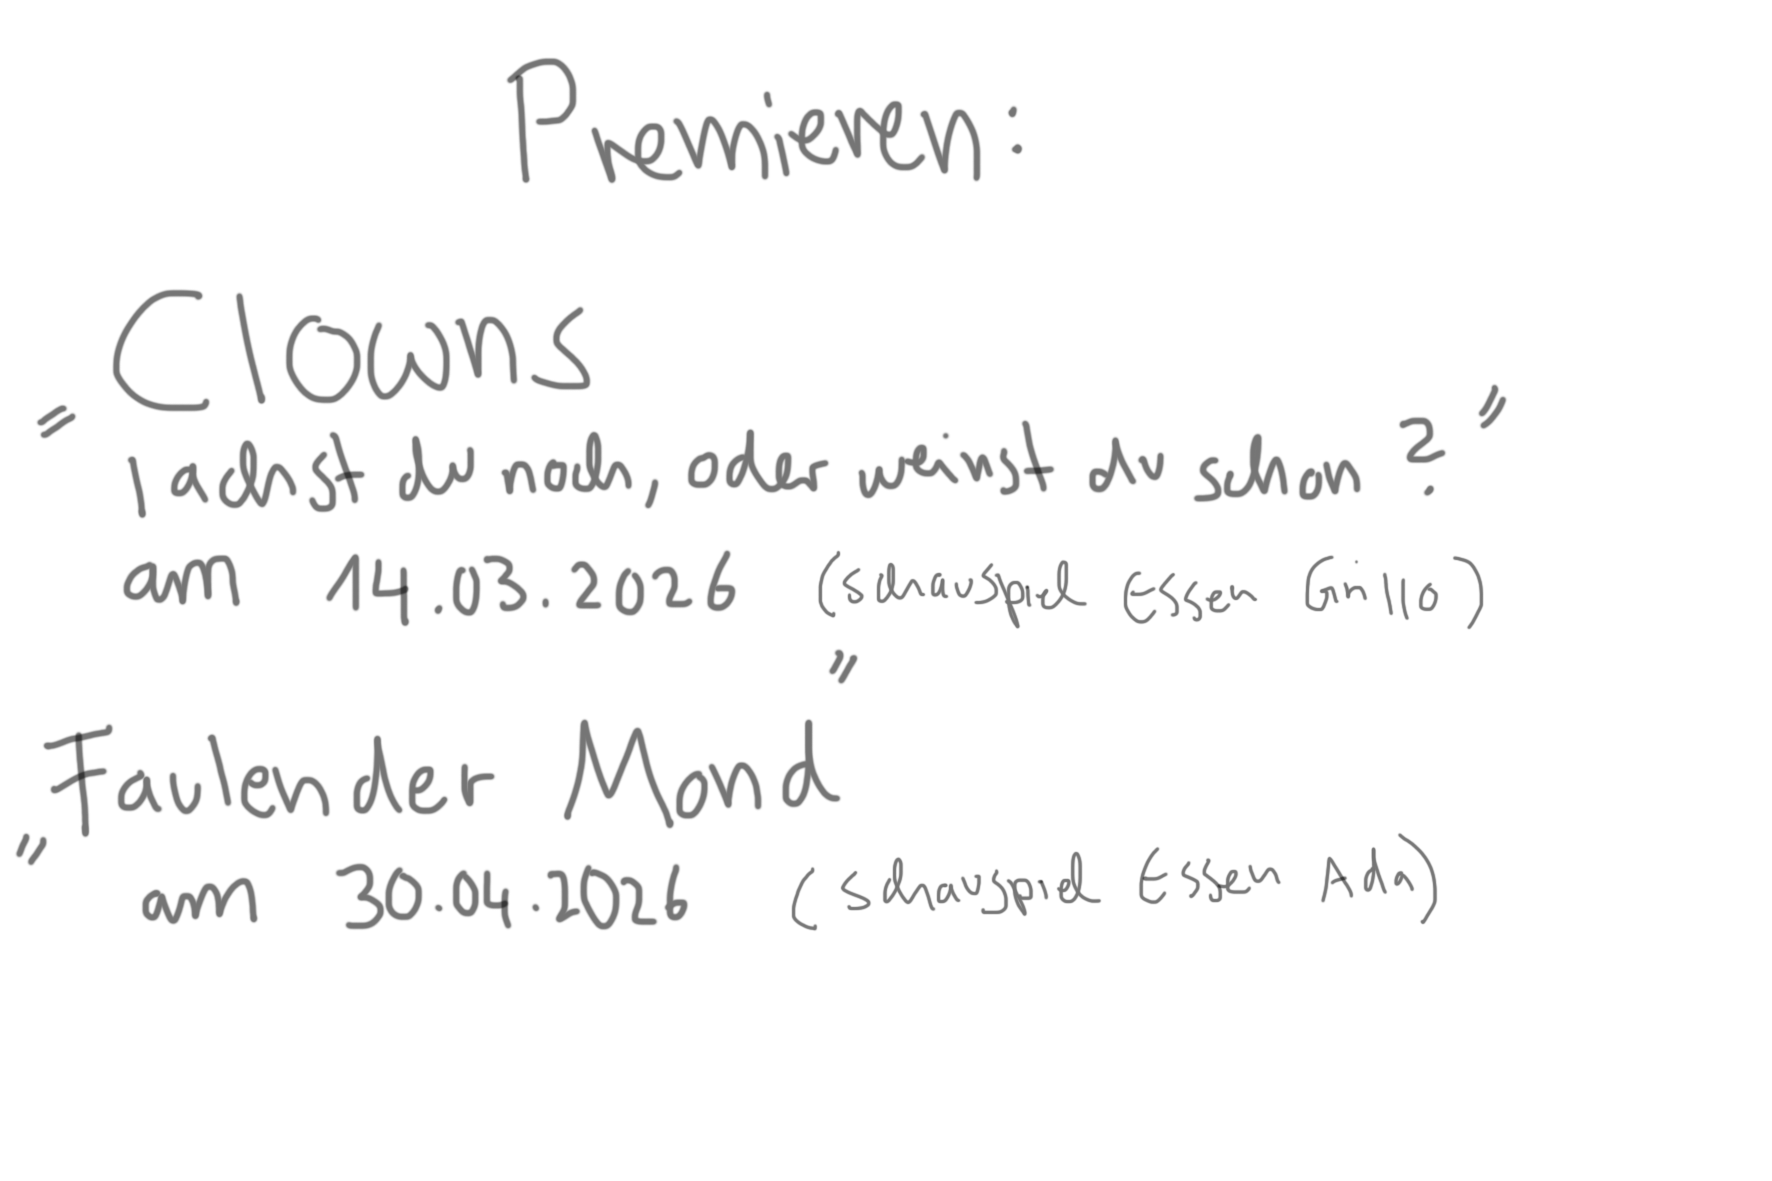 Premieren:
„Clowns
lachst du noch, oder weinst du schon?"
am 14.03.2026 (Schauspiel Essen Grillo)
„Faulender Mond"
am 30.04.2026 (Schauspiel Essen Ada)